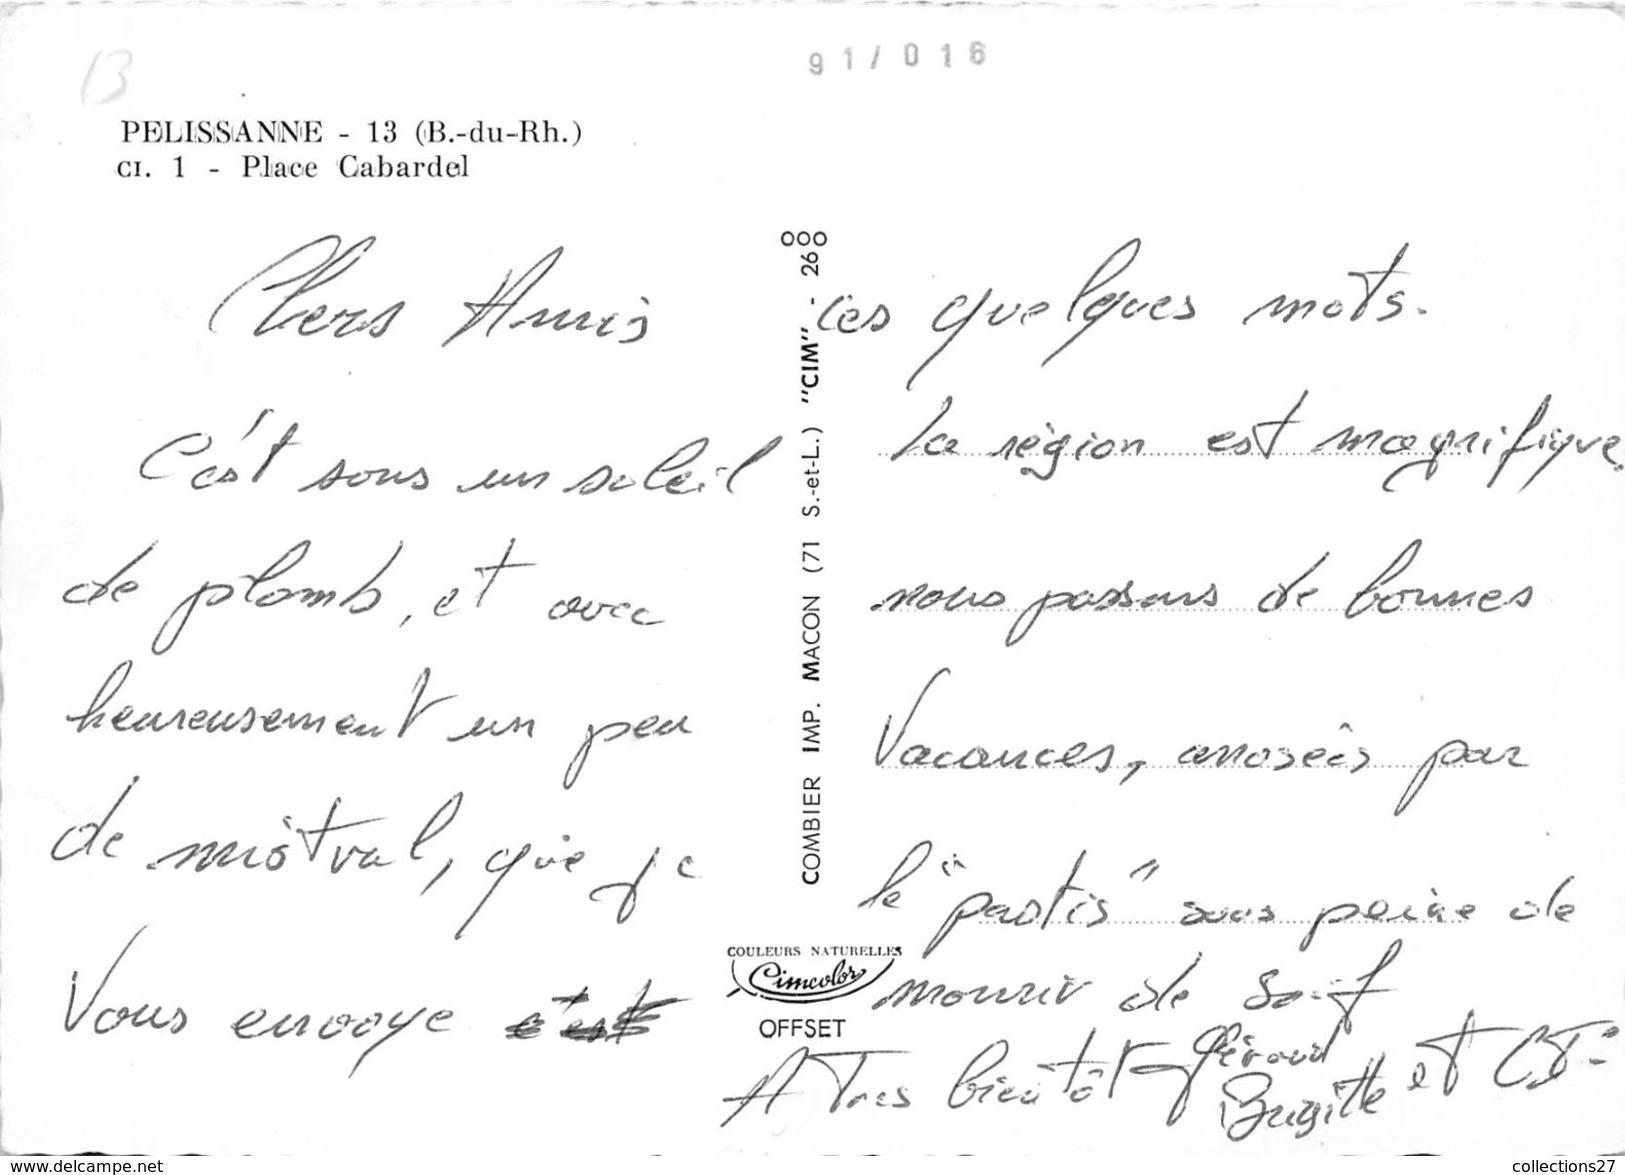 13
91/016
PELISSANNE - 13 (B.-du-Rh.)
CI. 1 - Place Cabardel
Chers Amis
C'est sous un soleil
de plomb, et avec
heureusement un peu
de mistral, que je
Vous envoye c'est
COMBIER IMP. MACON (71 S.-et-L.) "CIM" - 26000
COULEURS NATURELLES
Cimcolor
OFFSET
ces quelques mots.
La région est magnifique,
nous passons de bonnes
Vacances, arrosées par
le "pastis" sous peine de
mourir de soif
A Tres bientôt Gérard
Brigitte et Cie
collections27
www.delcampe.net